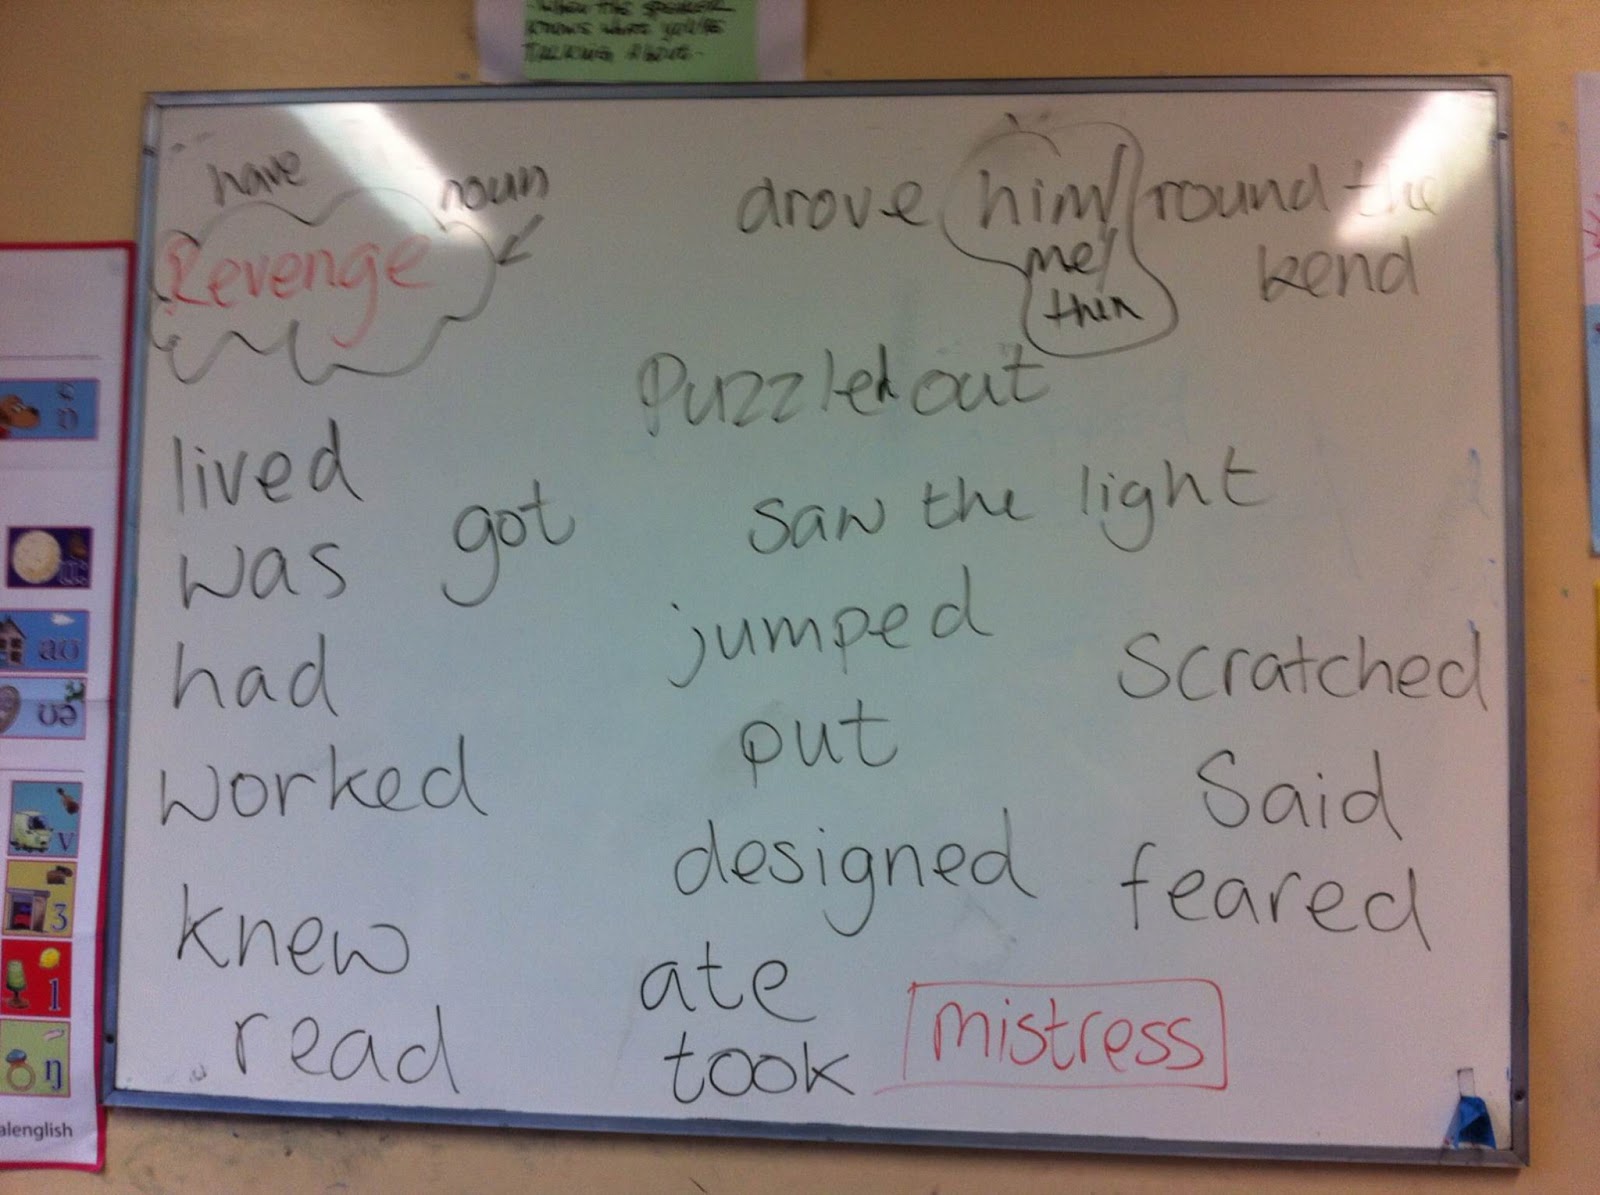 WHEN THE SPEAKER
KNOWS WHAT YOU'RE
TALKING ABOUT.
have noun
Revenge
drove him/ round the
me/ bend
thin
Puzzled out
lived
got
saw the light
was
jumped
had
scratched
put
worked
Said
designed
feared
knew
ate
mistress
read
took
e
ɒ
u:
aʊ
ʊə
v
ɜ
l
ŋ
alenglish